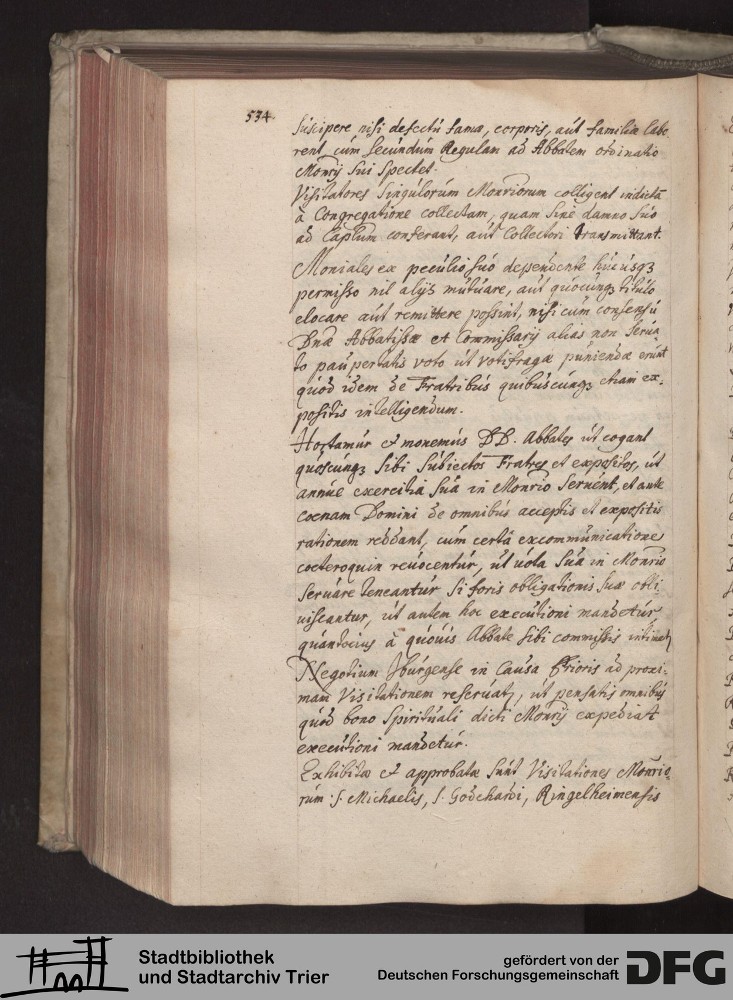 534
suscipere nisi defectu famæ, corporis, aut familiæ labo-
rent cum secundum Regulam ad Abbatem ordinatio
Monrij sui spectet.
Visitatores singulorum Monriorum colligent indictã
à Congregatione collectam, quam sine damno suo
ad Caplum conferant, aut Collectori transmittant.
Moniales ex peculio suo dependente hucusqꝫ
permisso nil alijs mutuare, aut quocunqꝫ titulo
elocare aut remittere possint, nisi cum consensu
Dnæ Abbatissæ et Commissarij alias non serua-
to paupertatis voto ut votifragæ puniendæ erunt
quod idem de Fratribus quibuscunqꝫ etiam ex-
positis intelligendum.
Hortamur et monemus DD. Abbates ut cogant
quoscunqꝫ sibi subiectos Fratres et expositos, ut
annue exercitia sua in Monrio seruent, et ante
coenam Domini de omnibus acceptis et expositis
rationem reddant, cum certa excommunicatione
coeteroquin reuocentur, ut uota sua in Monrio
seruare teneantur si foris obligationis suæ obli-
uiscantur, ut autem hoc executioni mandetur
quantocius à quouis Abbate sibi commissis intimetʒ
Negotium Iburgense in Causa Prioris ad proxi-
mam Visitationem reseruatʒ, ut pensatis omnibus
quod bono spirituali dicti Monrij expediat
executioni mandetur.
Exhibitæ et approbatæ sunt Visitationes Monrio-
rum S. Michaelis, S. Godehardi, Ringelheimensis
Stadtbibliothek
und Stadtarchiv Trier
gefördert von der
Deutschen Forschungsgemeinschaft
DFG